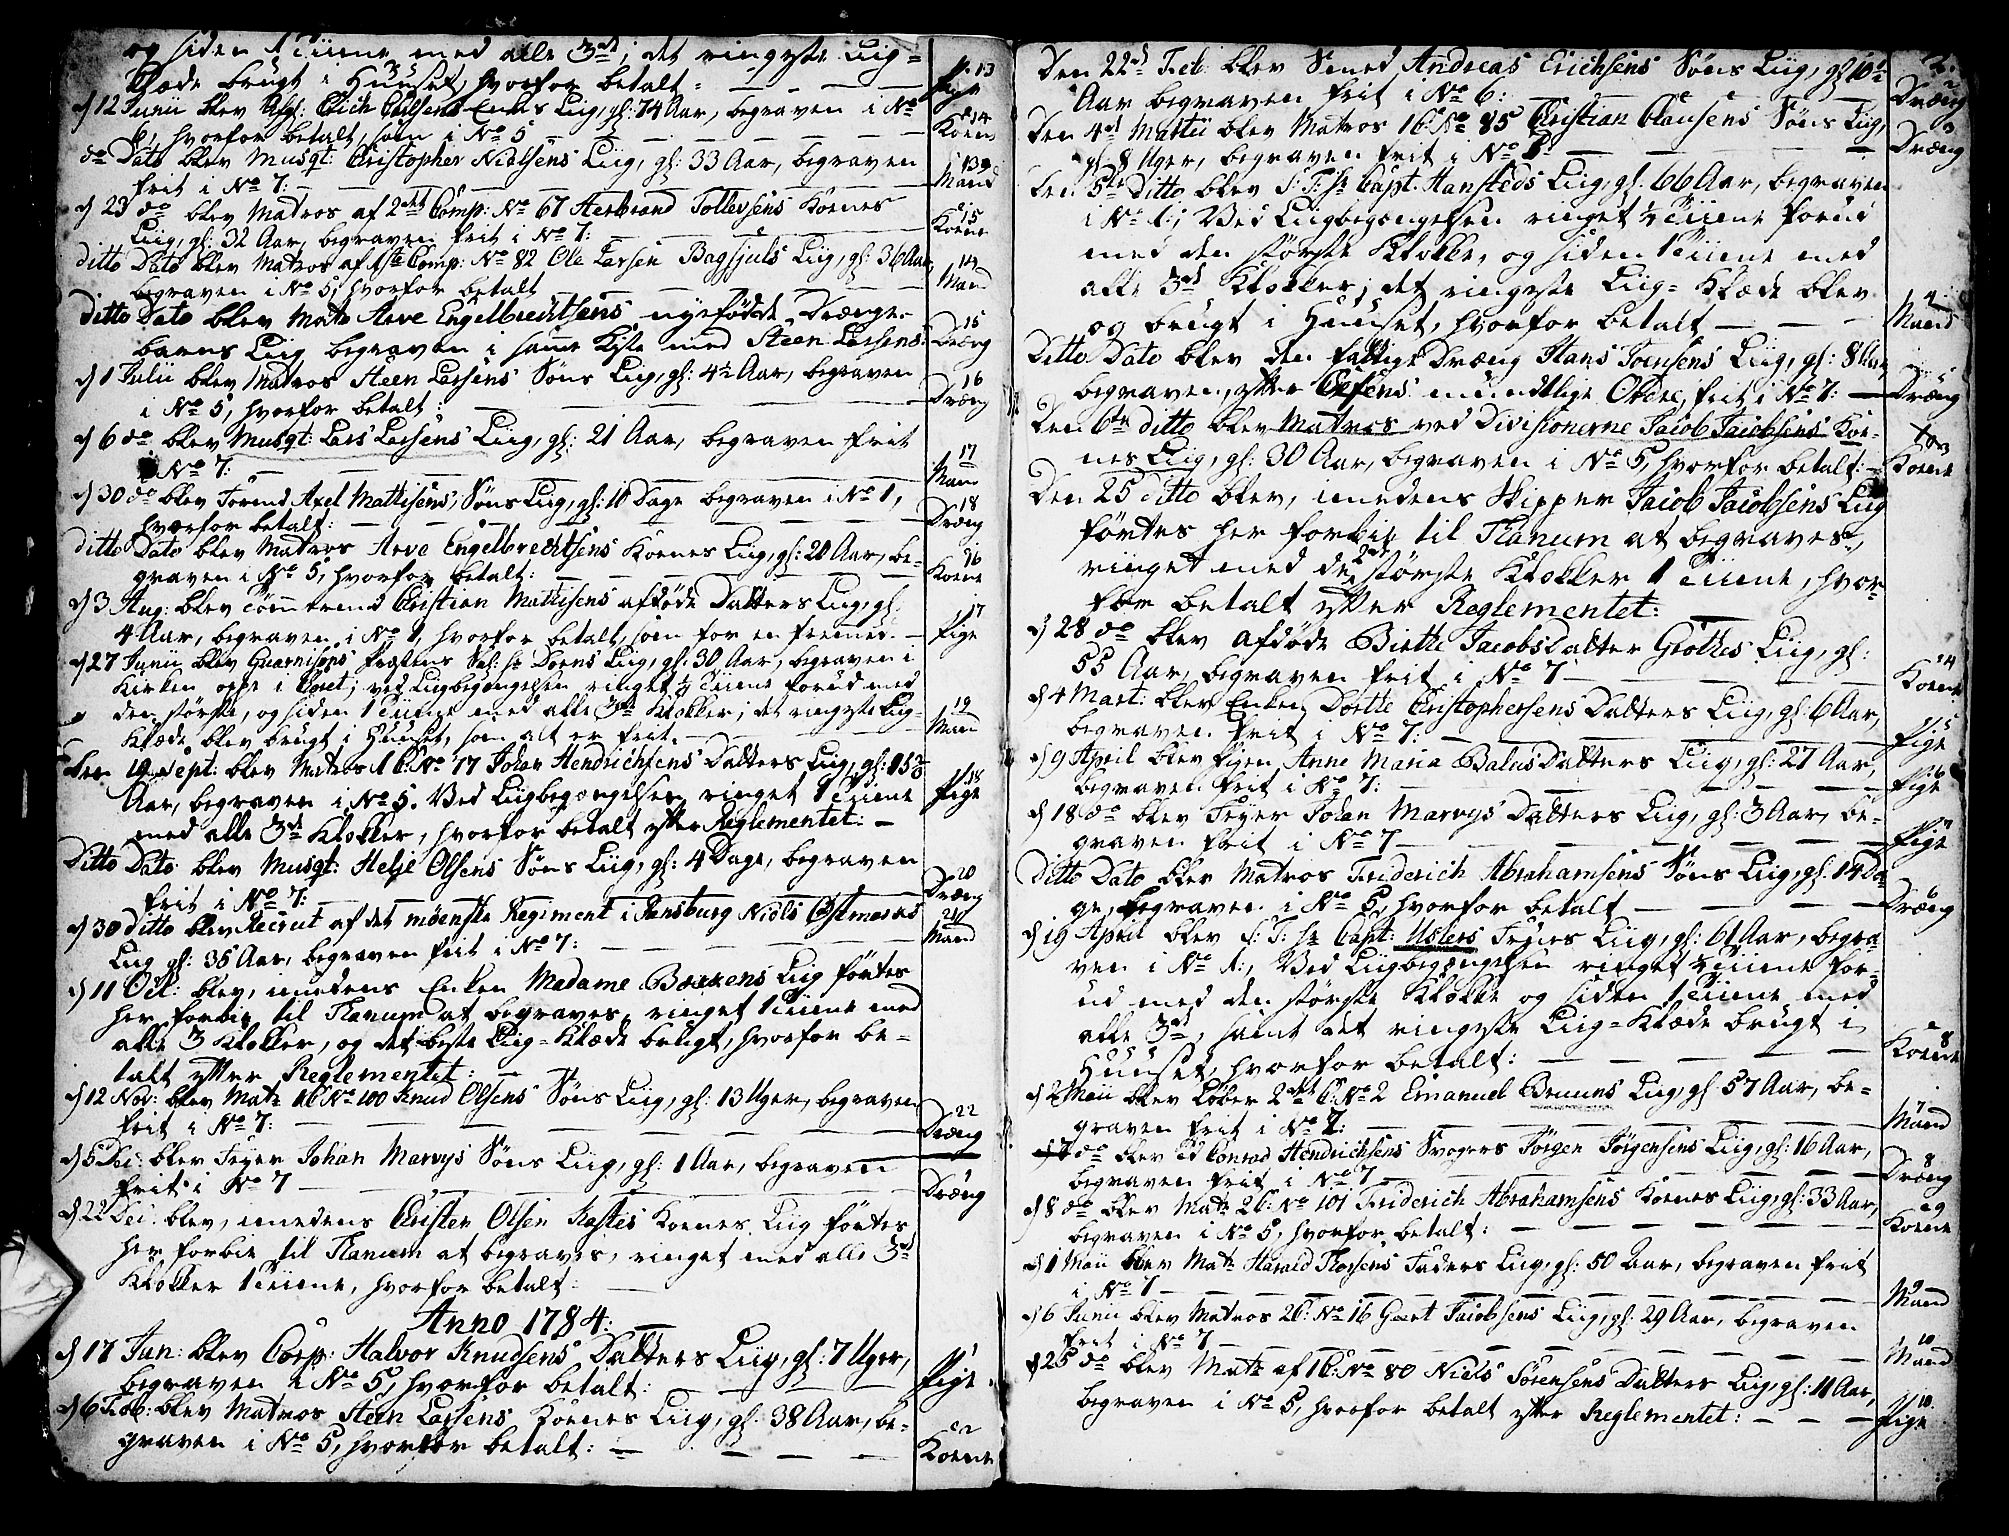 og siden 1 Tiime med alle 3de; det ringeste Liig-
Klæde brugt i Huuset, hvorfor betalt: 13 Pige
d 12 Junii blev Afg: Erich Enkes Liig, gl: 74 Aar, begraven i No
hvorfor betalt, som i No 5 14 Koene
do Dato blev Musqt: Christopher Nielsens Liig, gl: 33 Aar, begraven
frit i No 7: 13 Mand
d 23 do blev Matros af 2det Comp: No 67 Aerbrand Tollevsens Koenes
Liig, gl: 32 Aar, begraven frit i No 7: 15 Koene
ditto Dato blev Matros af 1ste Comp: No 82 Ole Larsen Bagsjuls Liig, gl: 36 Aar,
begraven i No 5, hvorfor betalt 14 Mand
Ditto Dato blev Mats Arve Engelbrechtsens nyefødde Drænge-
barns Liig begraven i samme Kiste med Steen Larsens: 15 Dræng
d 1 Julii blev Matros Steen Larsens Søns Liig, gl: 4½ Aar, begraven
i No 5, hvorfor betalt: 16 Dræng
d 6 do blev Musqt: Lars Larsens Liig, gl: 21 Aar, begraven frit
i No 7: 17 Mand
d 30 do blev Tømd Axel Mattisens, Søns Liig, gl: 10 Dage begraven i No 1,
hvorfor betalt: 18 Dræng
Ditto Dato blev Matros Arve Engelbrechtsens Koenes Liig, gl: 20 Aar, be-
graven i No 5, hvorfor betalt: 16 Koene
d 3 Aug: blev Tømmermd Christian Mattisens afdøde Datters Liig, gl:
4 Aar, begraven i No 1, hvorfor betalt, som for en fremmed. 17 Pige
d 27 Junii blev Guarnisons Præstens Sal: Hr Dorns Liig, gl: 30 Aar, begraven i
Kirken oppe i Coret; ved Liigbegængelsen ringet ½ Tiime forud med
den største, og siden 1 Tiime med alle 3de Klokker; det ringeste Liig-
Klæde blev brugt i Huuset, som alt er frit. 19 Mand
Den 19 Sept: blev Matros 1 C: No 77 Johan Hendrichsens Datters Liig, gl:
Aar, begraven i No 5. Ved Liigbegængelsen ringet 1 Tiime
med alle 3de Klokker, hvorfor betalt efter Reglementet: 18 Pige
Ditto Dato blev Musqt: Helje Olsens Søns Liig, gl: 4 Dage, begraven
frit i No 7: 20 Dræng
d 30 ditto blev Recrut af det møenske Regiment i Rensburg Niels Østmarks
Liig gl: 35 Aar, begraven frit i No 7: 21 Mand
d 11 Oct: blev, imedens Enken Madame Backens Liig førtes
her forbie til Tanum at begraves, ringet 1 Tiime med
alle 3 Klokker, og det beste Liig-Klæde brugt, hvorfor be-
talt efter Reglementet:
d 12 Nov: blev Matz 1 C No 100 Knud Olsens Søns Liig, gl: 13 Uger, begraven
frit i No 7: 22 Dræng
d 5 Dec: blev Feyer Johan Marvys Søns Liig, gl: 1 Aar, begraven
frit i No 7 Dræng
d 22 Dec: blev, imedens Christen Olsen Kastes Koenes Liig førtes
her forbie til Tanum at begraves, ringet med alle 3de
Klokker 1 Tiime, hvorfor betalt:
Anno 1784:
d 17 Jan: blev Corp: Halvor Knudsens Datters Liig, gl: 7 Uger,
begraven i No 5, hvorfor betalt: 1 Pige
d 6 Feb: blev Matros Steen Larsens Koenes Liig, gl: 38 Aar, be-
graven i No 5, hvorfor betalt: 2 Koene
Den 22de Feb: blev Smed Andreas Erichsens Søns Liig, gl 10½
Aar begraven frit i No 6: 2 Dræng
Den 4de Martii blev Matros 1 C: No 85 Christian Clausens Søns Liig,
gl 8 Uger, begraven frit i No 3 Dræng
Den 5te Ditto blev S: T: Hr Capt. Hansteds Liig, gl: 66 Aar, begraven
i No 1; Ved Liigbegængelsen ringet ½ Tiime forud
med den største Klokke, og siden 1 Tiime med
alle 3de Klokker; det ringeste Liig-Klæde blev
og brugt i Huuset, hvorfor betalt 4 Mand
Ditto Dato blev den fattige Dræng Hans Toensens Liig, gl: 8 Aar,
begraven, efter mundtlige Ordre, frit i No 7: 5 Dræng
Den 6te ditto blev Matros ved Divisionerne Jacob Jacobsens Koe-
nes Liig, gl: 30 Aar, begraven i No 5, hvorfor betalt: Koene
Den 25 ditto blev, imedens Skipper Jacob Jacobsens Liig
førtes her forbie til Tanum at begraves,
ringet med de 2de største Klokker 1 Tiime, hvor-
for betalt efter Reglementet:
d 28 do blev afdøde Birthe JacobsDatter Grøthes Liig, gl:
55 Aar, begraven frit i No 7 4 Koene
d 4 Mart: blev Enken Dorthe Christophersens Datters Liig, gl: 6 Aar,
begraven frit i No 7: 5 Pige
d 9 April blev Pigen Anne Maria BalusDatters Liig, gl: 27 Aar,
begraven frit i No 7: 6 Pige
d 18 do blev Feyer Johan Marvys Datters Liig, gl: 3 Aar, be-
graven frit i No 7 7 Pige
Ditto Dato blev Matros Friderich Abrahamsens Søns Liig, gl: 14 Da-
ge, begraven i No 5, hvorfor betalt 6 Dræng
d 19 April blev S: T: Hr Capt: Uslers Frues Liig, gl: 61 Aar, begra-
ven i No 1:, Ved Liigbegængelsen ringet ½ Tiime for-
ud med den største Klokke og siden 1 Tiime med
alle 3de, samt det ringeste Liig-Klæde brugt i
Huuset, hvorfor betalt: 8 Koene
d 2 Maii blev Løber 2det C: No 2 Emanuel Bruuns Liig, gl 57 Aar, be-
graven frit i No 7: 7 Mand
d 17 do blev Conrad Hendrichsens Svogers Jørgen Jørgensens Liig, gl: 16 Aar,
begraven frit i No 7 8 Dræng
d 8 do blev Matz 2 C: No 101 Friderich Abrahamsens Koenes Liig, gl: 33 Aar,
begraven i No 5, hvorfor betalt: 9 Koene
d 1 Maii blev Matz Harald Thorsens Faders Liig, gl: 50 Aar, begraven frit
i No 7 9 Mand
d 6 Junii blev Matros 2 C: No 16 Geert Jacobsens Liig, gl: 29 Aar, begraven
frit i No 7 10 Mand
d 25 do blev Matz af 1 C: No 80 Niels Sørensens Datters Liig, gl: 11 Aar,
begraven i No 5, hvorfor betalt efter Reglementet: 10 Pige